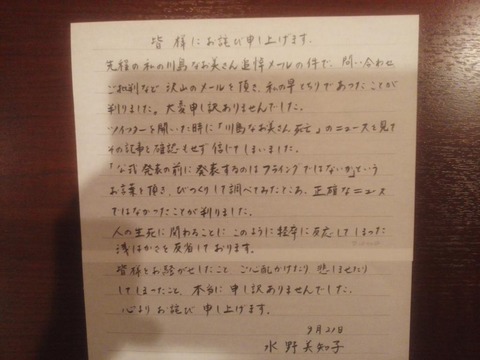 皆様にお詫び申し上げます.
先程の私の川島なお美さん追悼メールの件で、問い合わせ
ご批判など沢山のメールを頂き、私の早とちりであったことが
判りました。大変申し訳ありませんでした。
ツイッターを開いた時に「川島なお美さん死亡」のニュースを見て
その記事を確認もせず信じてしまいました。
「公式発表の前に発表するのはフライングではないか」という
お言葉を頂き、びっくりして調べてみたところ、正確なニュース
ではなかったことが判りました。
人の生死に関わることに、このように軽率に反応してしまった
浅はかさを反省しております。
皆様をお騒がせしたこと、ご心配かけたり、悲しませたり
してしまったこと、本当に申し訳ありませんでした。
心よりお詫び申し上げます。
9月21日
水野美知子